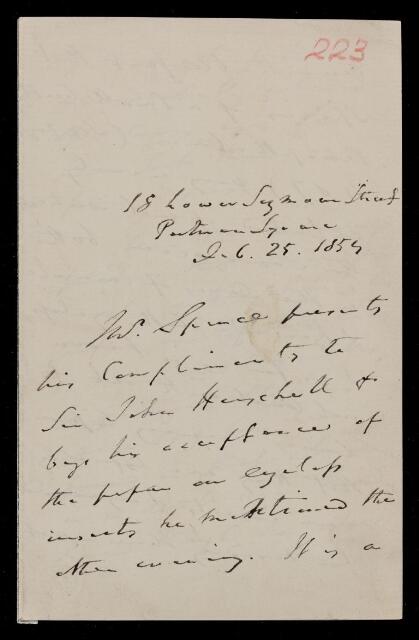 223
18 Lower Seymour Street
Portman Square
Feb. 25. 1854
Mr. Spence presents
his Compliments to
Sir John Herschell &
begs his acceptance of
the paper on eyeless
insects he mentioned the
other evening. It is a